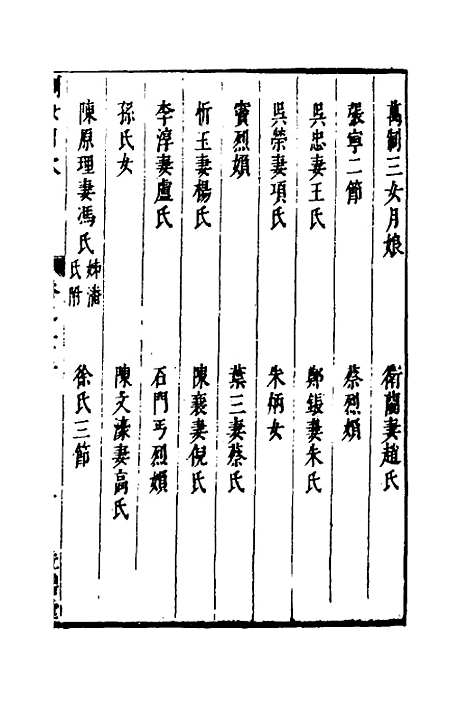 萬制三女月娘
衛蘭妻趙氏
張寧二節
蔡烈婦
吳忠妻王氏
鄭鋹妻朱氏
吳榮妻項氏
朱炳女
竇烈婦
葉三妻蔡氏
忻玉妻楊氏
陳襄妻倪氏
李淳妻盧氏
石門丐烈婦
孫氏女
陳文濠妻高氏
陳原理妻馮氏姊潘氏附
徐氏三節